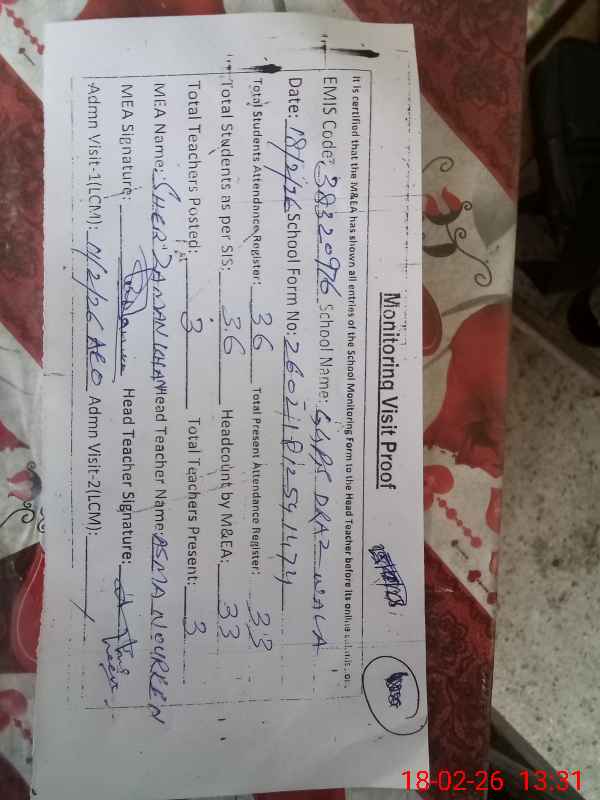 Monitoring Visit Proof
It is certified that the M&EA has shown all entries of the School Monitoring Form to the Head Teacher before its online
EMIS Code: 38320976 School Name: GGPS DRAZ WALA
Date: 18/2/26 School Form No:
Total Students Attendance Register: 36 Total Present Attendance Register: 33
Total Students as per SIS: 36 Headcount by M&EA: 33
Total Teachers Posted: 3 Total Teachers Present: 3
MEA Name: SHER ZAMAN KHAN Head Teacher Name: ASMA NOUREEN
MEA Signature: Head Teacher Signature:
Admn Visit-1(LCM): 11/2/26 AEO Admn Visit-2(LCM):
18-02-26 13:31